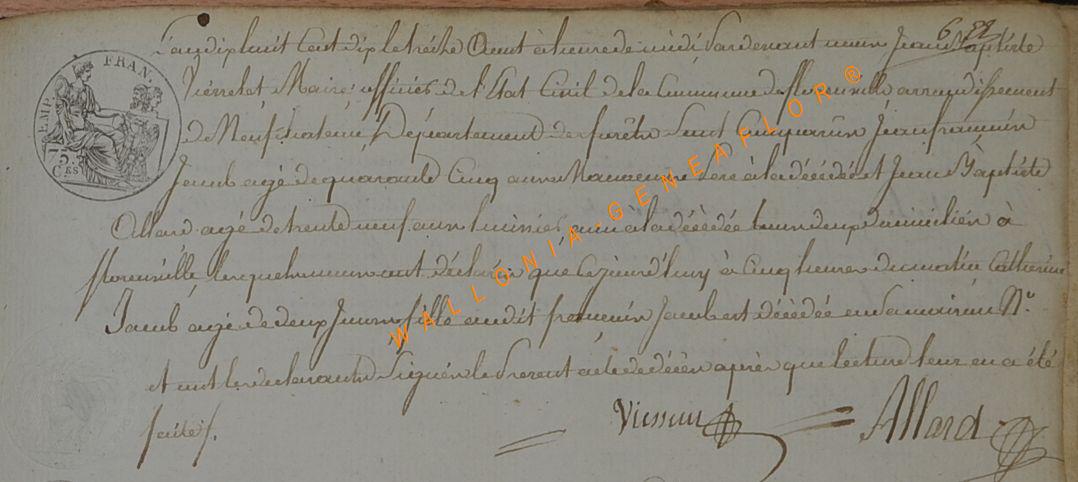 6 22
L'an dix huit cent dix le treize Aout à heure de midi Pardevant nous Jean Baptiste
Pierret Maire, officier de l'Etat Civil de la Commune de florenville arrondissement
de Neufchateau, Département des forêts sont comparus Jean françois
Jacob agé de quarante cinq ans Manoeuvre Père à la décédée et Jean Baptiste
Allard agé de trente neuf ans ami à la décédée tous deux domiciliés à
florenville, lesquels nous ont déclarés que cejourd'huy à cinq heures du matin Catherine
Jacob agé de deux Jours fille audit françois Jacob est décédée en sa maison N°
et ont les declarants Signés le Present acte de décès après que lecture leur en a été
faite.
Allard
EMP. FRAN.
75
CES
WALLONIA-GENEAFLOR®